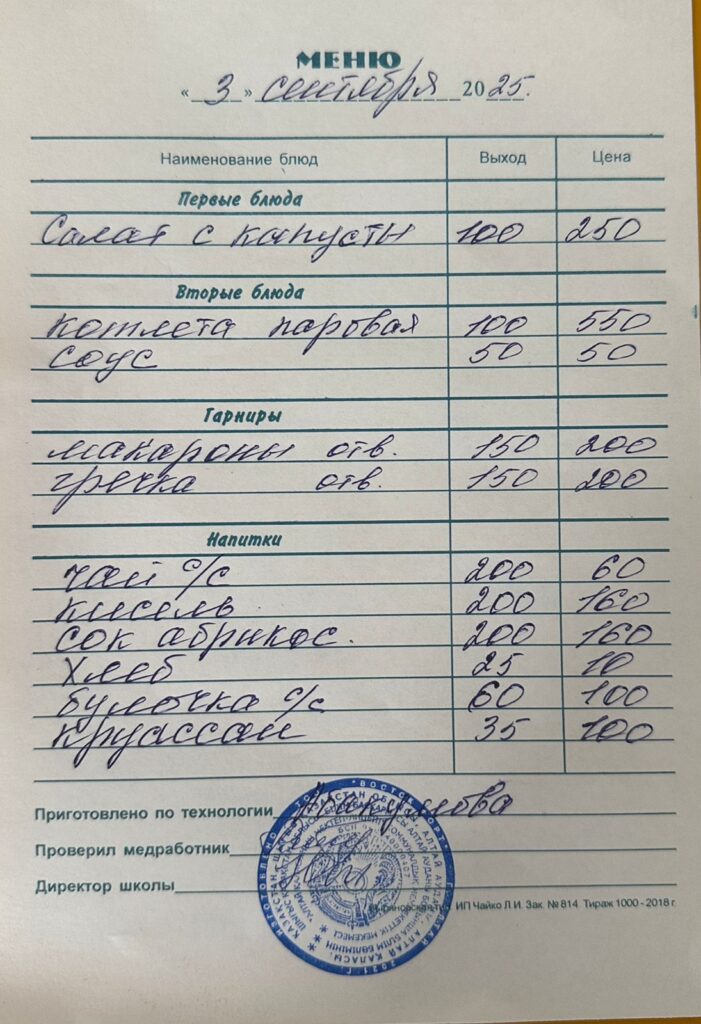 МЕНЮ
« 3 » сентября 2025.
Наименование блюд Выход Цена
Первые блюда
Салат с капусты 100 250
Вторые блюда
котлета паровая 100 550
соус 50 50
Гарниры
макароны отв. 150 200
гречка отв. 150 200
Напитки
чай с/с 200 60
кисель 200 160
сок абрикос. 200 160
хлеб 25 10
булочка с/с 60 100
круассан 35 100
Приготовлено по технологии
Проверил медработник
Директор школы
ИП Чайко Л.И. Зак. № 814 Тираж 1000 - 2018 г.